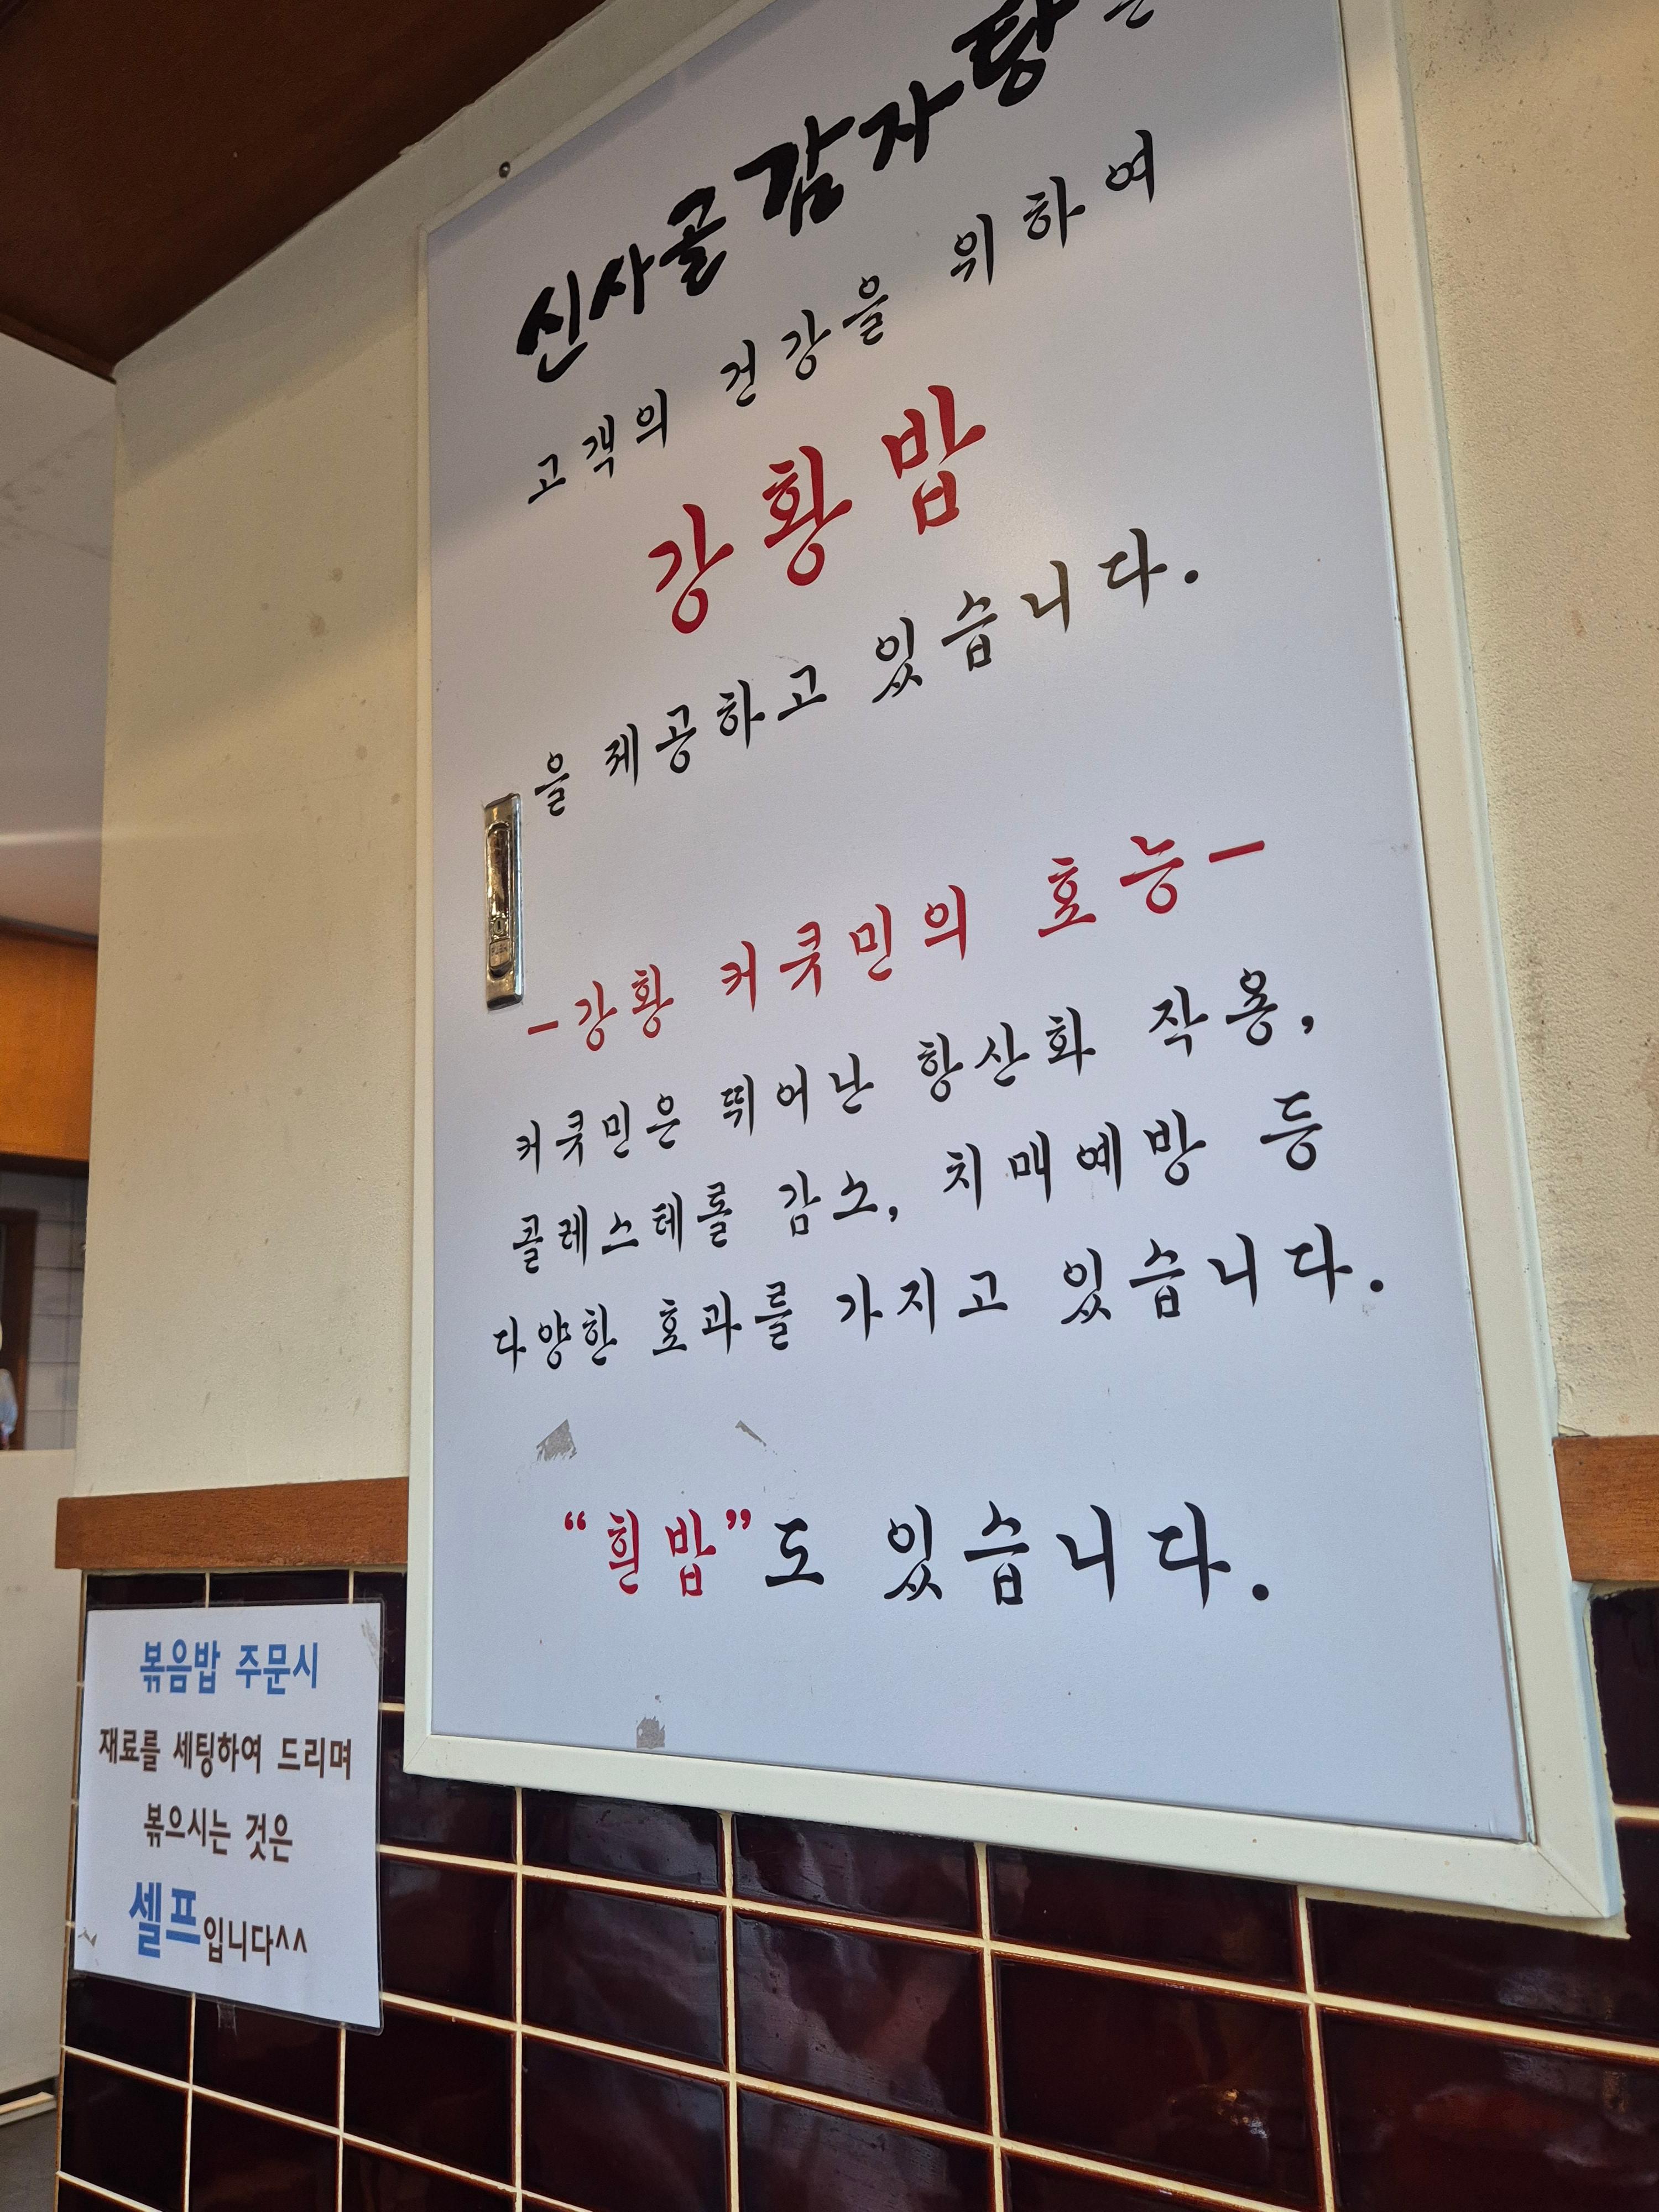 신사골감자탕은
고객의 건강을 위하여
강황밥
을 제공하고 있습니다.
-강황 커큣민의 효능-
커큣민은 뛰어난 항산화 작용,
콜레스테롤 감소, 치매예방 등
다양한 효과를 가지고 있습니다.
“흰밥”도 있습니다.
볶음밥 주문시
재료를 세팅하여 드리며
볶으시는 것은
셀프입니다^^